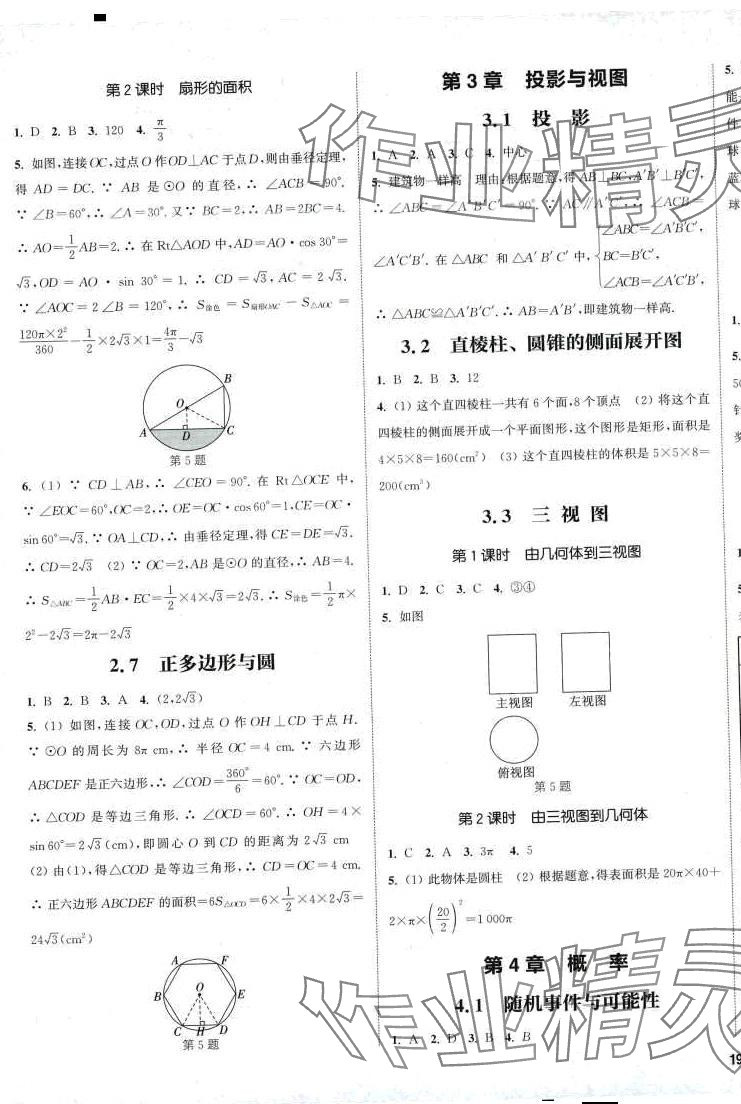 第2课时 扇形的面积
1. D 2. B 3. 120 4. π/3
5. 如图,连接OC,过点O作OD⊥AC于点D,则由垂径定理,
得 AD=DC. ∵ AB 是⊙O 的直径,∴ ∠ACB=90°.
∵ ∠B=60°,∴ ∠A=30°. 又∵ BC=2,∴ AB=2BC=4.
∴ AO=1/2AB=2. ∴ 在 Rt△AOD 中,AD=AO·cos 30°=
√3,OD=AO·sin 30°=1. ∴ CD=√3,AC=2√3.
∵ ∠AOC=2∠B=120°,∴ S涂色=S扇形OAC-S△AOC=
120π×2²/360-1/2×2√3×1=4π/3-√3
B
O
A
D
C
第5题
6. (1) ∵ CD⊥AB,∴ ∠CEO=90°. 在 Rt△OCE 中,
∵ ∠EOC=60°,OC=2,∴ OE=OC·cos60°=1,CE=OC·
sin60°=√3. ∵ OA⊥CD,∴ 由垂径定理,得 CE=DE=√3.
∴ CD=2√3 (2) ∵ OC=2,AB 是⊙O 的直径,∴ AB=4.
∴ S△ABC=1/2AB·EC=1/2×4×√3=2√3. ∴ S涂色=1/2π×
2²-2√3=2π-2√3
2.7 正多边形与圆
1. B 2. B 3. A 4. (2,2√3)
5. (1) 如图,连接 OC,OD,过点 O 作 OH⊥CD 于点 H.
∵ ⊙O 的周长为 8π cm,∴ 半径 OC=4 cm. ∵ 六边形
ABCDEF 是正六边形,∴ ∠COD=360°/6=60°. ∵ OC=OD,
∴ △COD 是等边三角形. ∴ ∠OCD=60°. ∴ OH=4×
sin60°=2√3(cm),即圆心 O 到 CD 的距离为 2√3 cm
(2) 由(1),得△COD 是等边三角形,∴ CD=OC=4 cm.
∴ 正六边形 ABCDEF 的面积=6S△OCD=6×1/2×4×2√3=
24√3(cm²)
A F
B O E
C H D
第5题
第3章 投影与视图
3.1 投 影
1. A 2. A 3. C 4. 中心
5. 建筑物一样高 理由:根据题意,得 AB⊥BC,A′B′⊥B′C′,
∴ ∠ABC=∠A′B′C′=90°. ∵ AC∥A′C′,∴ ∠ACB=
∠A′C′B′. 在 △ABC 和 △A′B′C′ 中, {∠ABC=∠A′B′C′, BC=B′C′, ∠ACB=∠A′C′B′,
∴ △ABC≌△A′B′C′. ∴ AB=A′B′,即建筑物一样高.
3.2 直棱柱、圆锥的侧面展开图
1. B 2. B 3. 12
4. (1) 这个直四棱柱一共有6个面,8个顶点 (2) 将这个直
四棱柱的侧面展开成一个平面图形,这个图形是矩形,面积是
4×5×8=160(cm²) (3) 这个直四棱柱的体积是 5×5×8=
200(cm³)
3.3 三 视 图
第1课时 由几何体到三视图
1. D 2. C 3. C 4. ③④
5. 如图
主视图 左视图
俯视图
第5题
第2课时 由三视图到几何体
1. C 2. A 3. 3π 4. 5
5. (1) 此物体是圆柱 (2) 根据题意,得表面积是 20π×40+
2×π×(20/2)²=1 000π
第4章 概 率
4.1 随机事件与可能性
1. A 2. D 3. B 4. B
5.
能
件
球
蓝
球
1.
5.
50
针
奖
1.
2.
5.
19
作业精灵
作业精灵